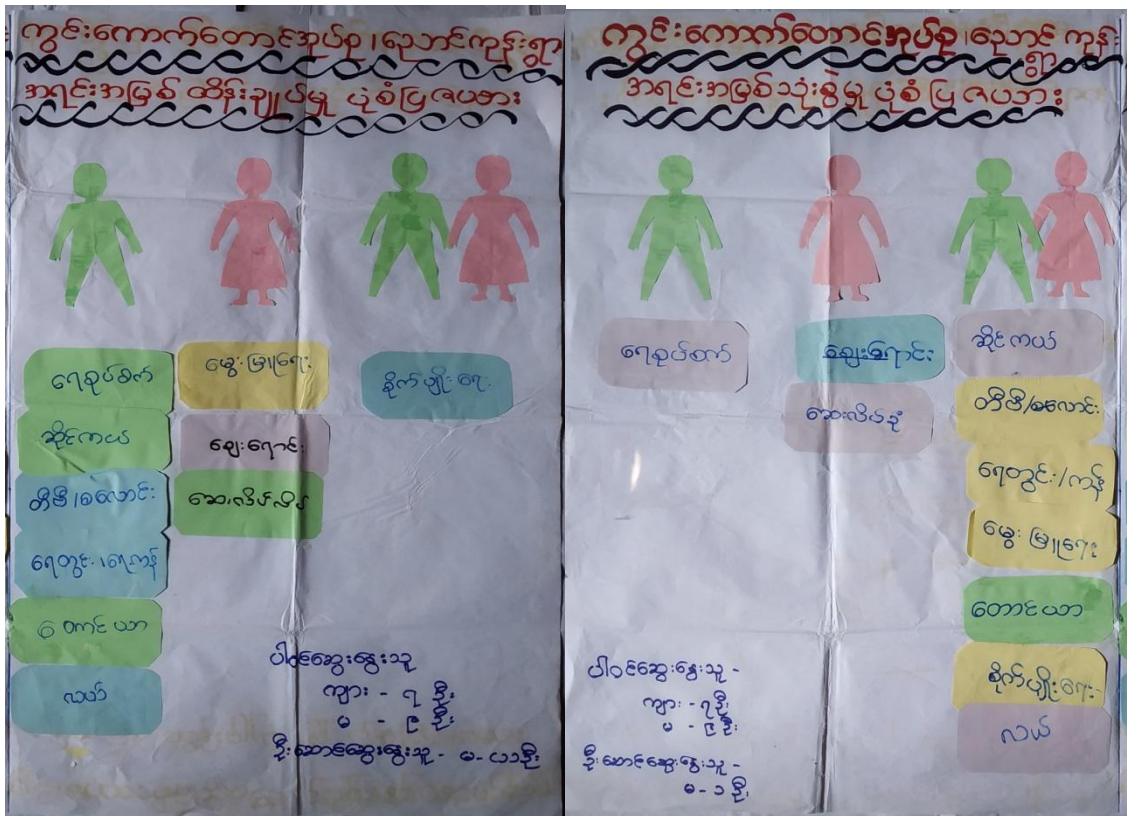 ကွင်းကောက်တောင်အုပ်စု၊ညောင်ကုန်းရွာ
အရင်းအမြစ် ထိန်းချုပ်မှု ပုံစံပြဇယား
ရေစုပ်စက်
ဆိုင်ကယ်
တီဗီ/စလောင်း
ရေတွင်း၊ရေကန်
တောင်ယာ
လယ်
မွေးမြူရေး
ဈေးရောင်း
ဆေးလိပ်လိပ်
စိုက်ပျိုးရေး
ပါဝင်ဆွေးနွေးသူ
ကျား - ၇ ဦး
မ - ၉ ဦး
ဦးဆောင်ဆွေးနွေးသူ -
ကွင်းကောက်တောင်အုပ်စု၊ညောင်ကုန်း
ရွာ
အရင်းအမြစ်သုံးစွဲမှု ပုံစံပြဇယား
ရေစုပ်စက်
ဈေးရောင်း
ဆေးလိပ်ခုံ
ဆိုင်ကယ်
တီဗီ/စလောင်း
ရေတွင်း/ကန်
မွေးမြူရေး
တောင်ယာ
စိုက်ပျိုးရေး
လယ်
ပါဝင်ဆွေးနွေးသူ -
ကျား - ၇ဦး
မ - ၉ဦး
ဦးဆောင်ဆွေးနွေးသူ -
မ - ၁ ဦး